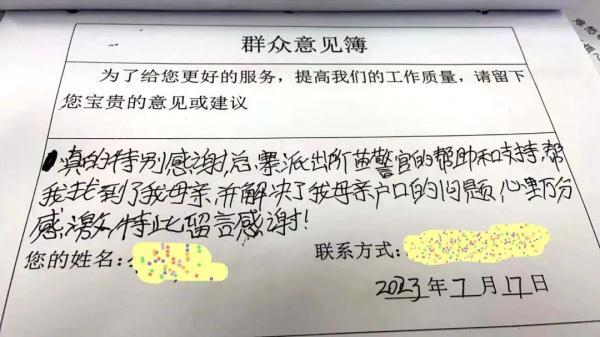 群众意见簿
为了给您更好的服务，提高我们的工作质量，请留下
您宝贵的意见或建议
真的特别感谢总寨派出所苗警官的帮助和支持，帮
我找到了我母亲，并解决了我母亲户口的问题，心里万分
感激，特此留言感谢！
您的姓名：
联系方式：
2023年7月17日